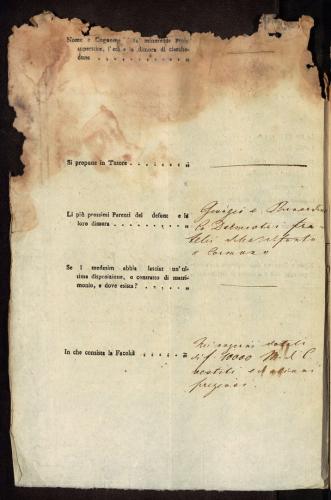 Nome e Cognome
superstite, l'età e la dimora di ciasche-
duno
Si propone in Tutore
Li più prossimi Parenti del defunto e la
loro dimora
Giorgio e
fra-
telli della defunta
a Cormons
Se i medesimi abbia lasciat un'ul-
tima disposizione, o contratto di matri-
monio, e dove esista?
In che consista la Facoltà
dotali
di f. 10000 M. d. C.
vestiti ed alcuni
preziosi.